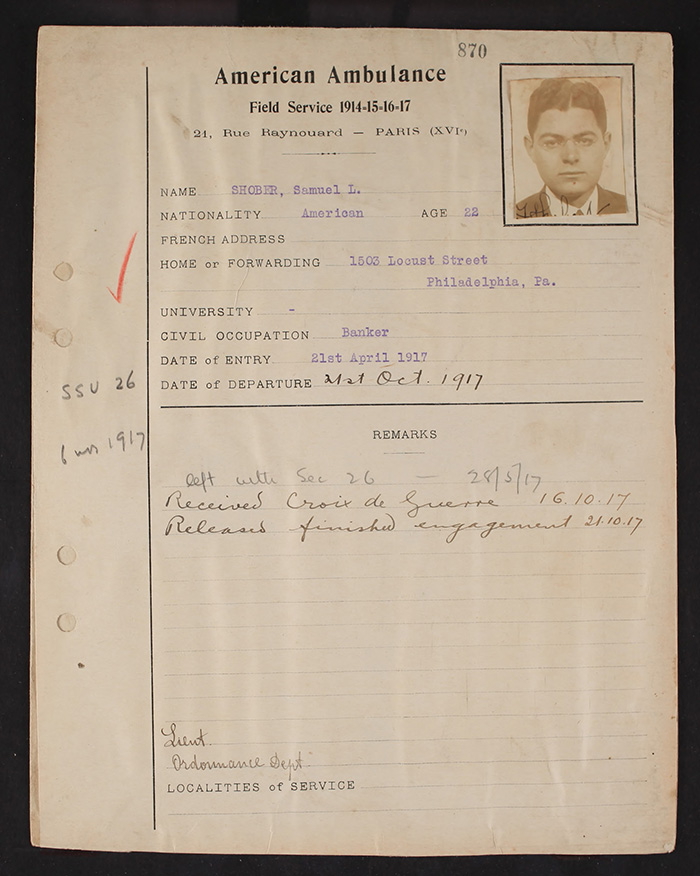 870
American Ambulance
Field Service 1914-15-16-17
21, Rue Raynouard — PARIS (XVIe)
NAME SHOBER, Samuel L.
NATIONALITY American AGE 22
FRENCH ADDRESS
HOME or FORWARDING 1503 Locust Street
Philadelphia, Pa.
UNIVERSITY -
CIVIL OCCUPATION Banker
DATE of ENTRY 21st April 1917
DATE of DEPARTURE 21st Oct. 1917
SSU 26
6 mos 1917
REMARKS
left with Sec 26 — 28/5/17
Received Croix de Guerre 16.10.17
Released finished engagement 21.10.17
Lieut
Ordonnance Dept
LOCALITIES of SERVICE